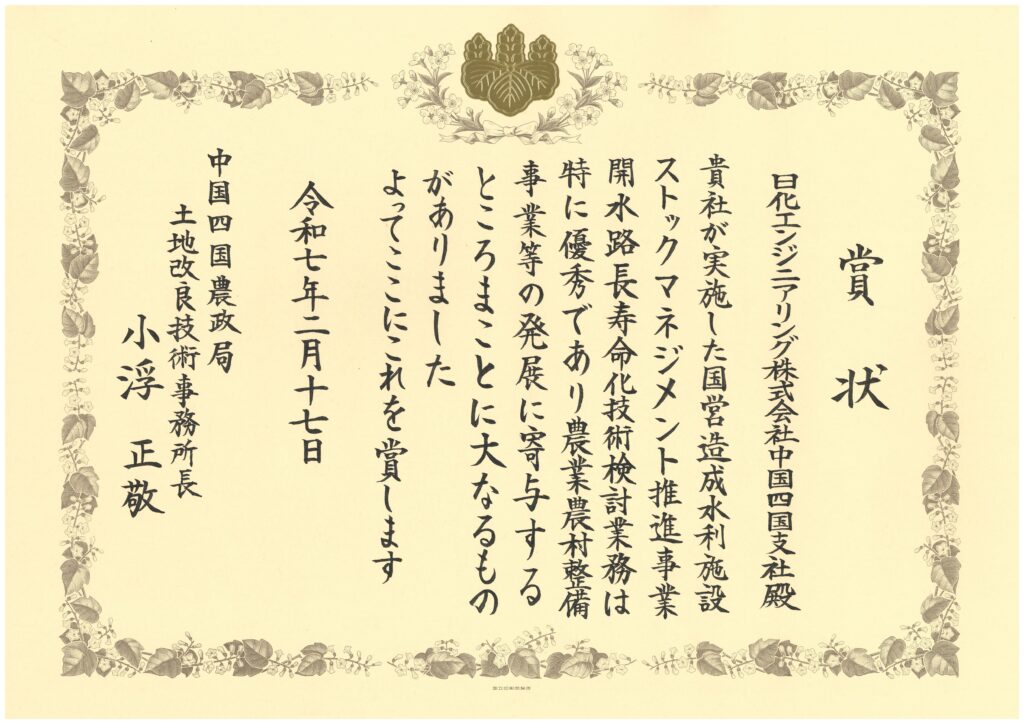 賞状
日化エンジニアリング株式会社中国四国支社殿
貴社が実施した国営造成水利施設
ストックマネジメント推進事業
開水路長寿命化技術検討業務は
特に優秀であり農業農村整備
事業等の発展に寄与する
ところまことに大なるもの
がありました
よってここにこれを賞します
令和七年二月十七日
中国四国農政局
土地改良技術事務所長
小浮正敬